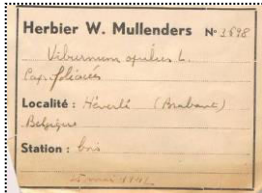 Herbier W. Mullenders N° 1898
Viburnum opulus L.
Localité : Héverlé (Brabant)
Belgique
Station : bois